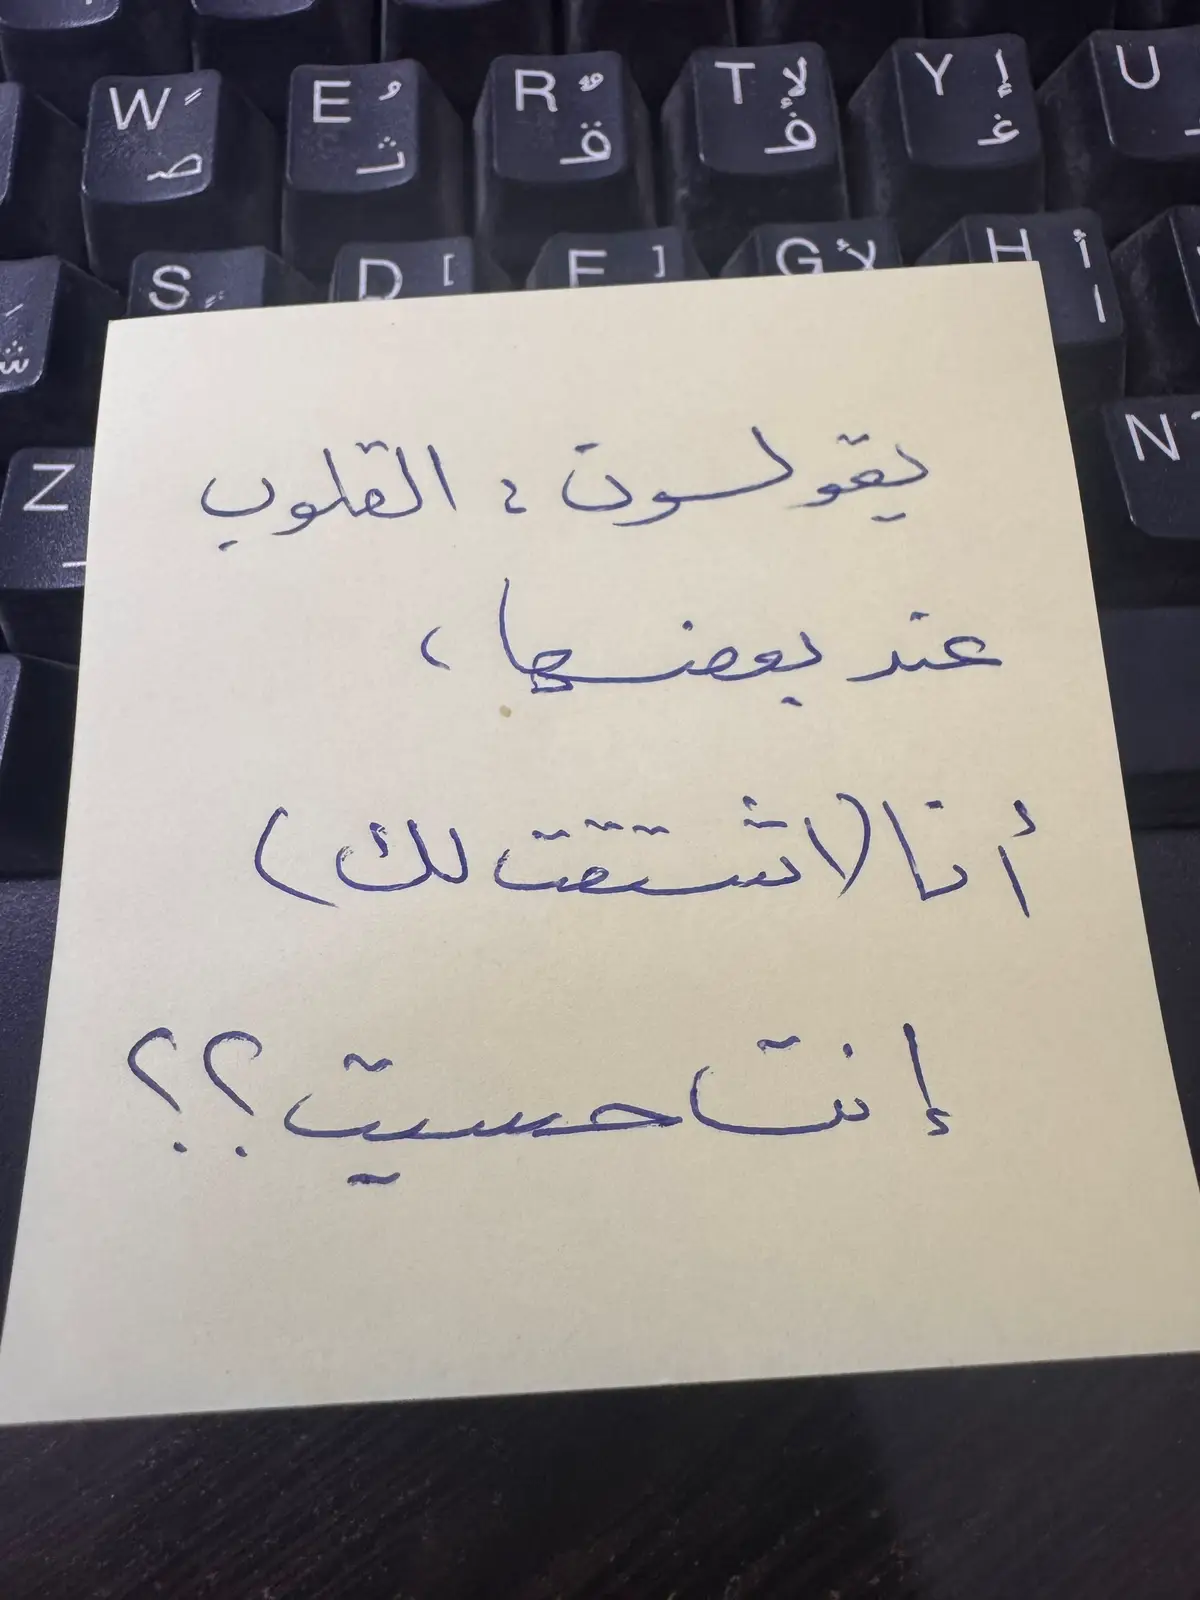 W ً ص
E ُ ث
R ٌ ق
T لإ ف
Y إ غ
U
S ٍ
D [
F ]
G لأ
H أ ا
ش
Z
N
يقولون : القلوب
عند بعضها ،
أنا (اشتقت لك)
إنت حسيت ؟؟